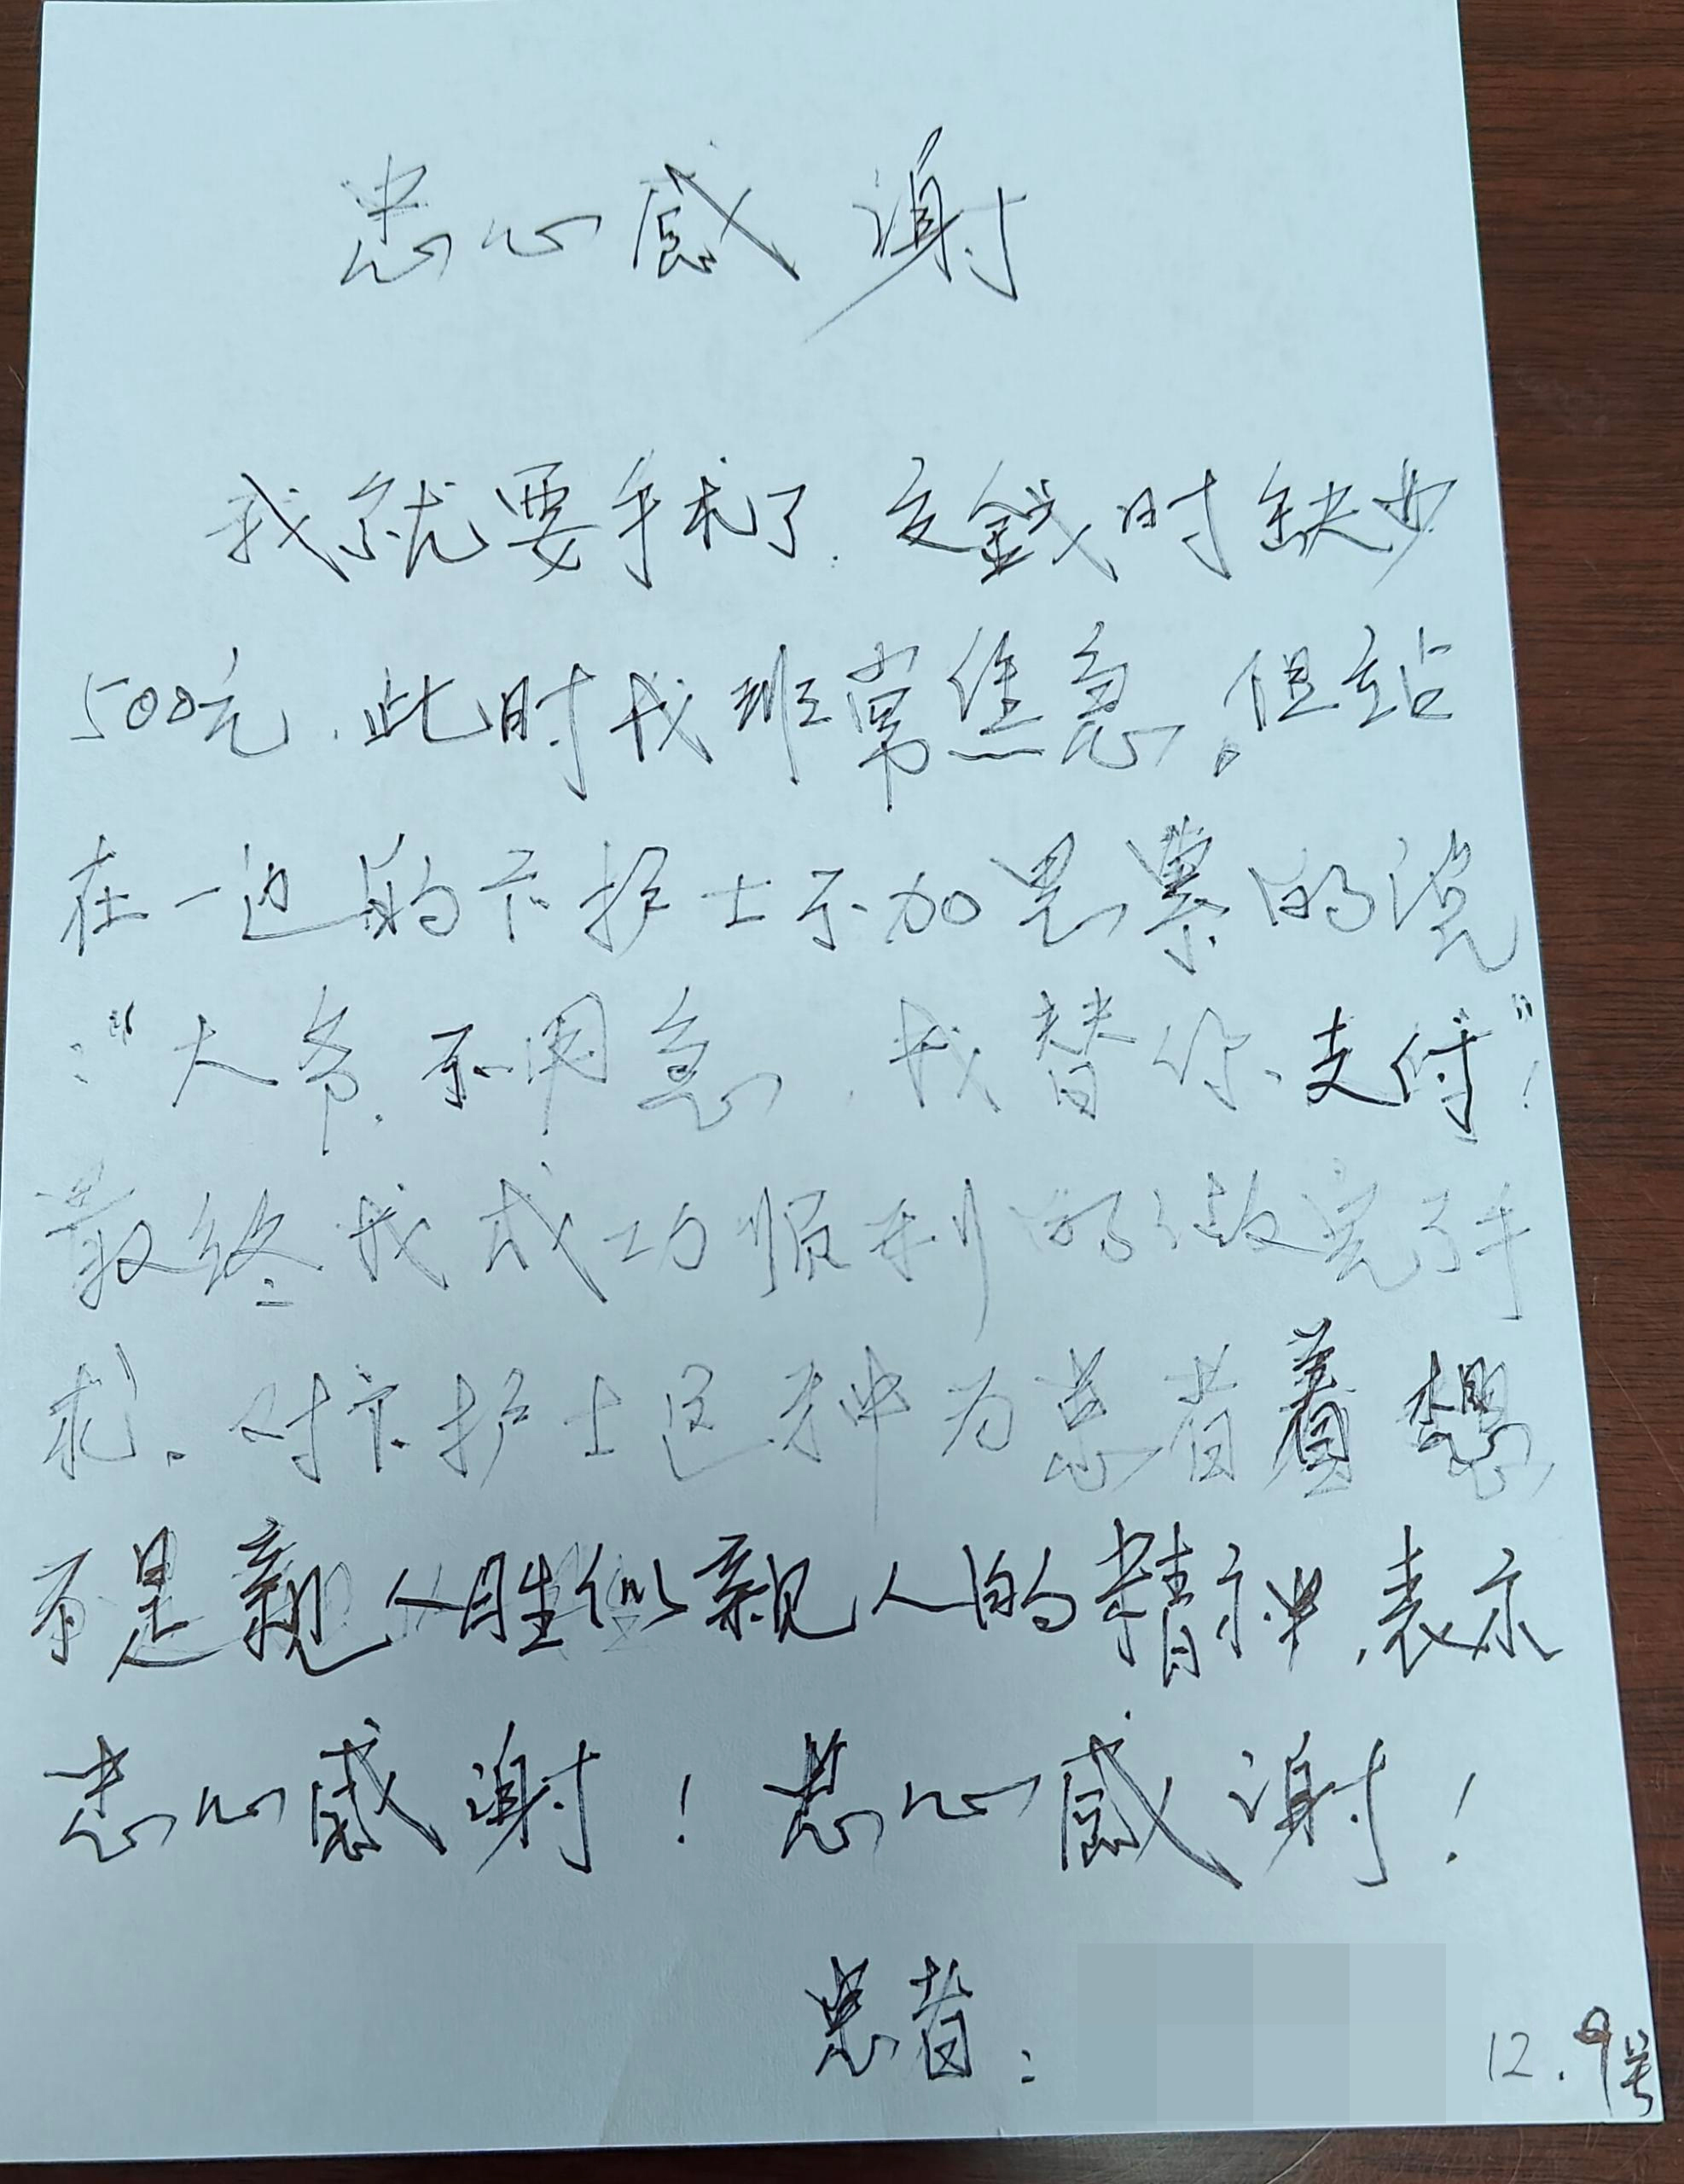 忠心感谢
我就要手术了.交錢时缺少
500元.此时我非常焦急。但站
在一边的卞护士不加思索的说
:“大爷.不用急,我替你支付”!
最终我成功顺利的做完了手
术。对卞护士这种为患者着想
不是親人胜似親人的精神,表示
忠心感谢!忠心感谢!
患者:
12.9号